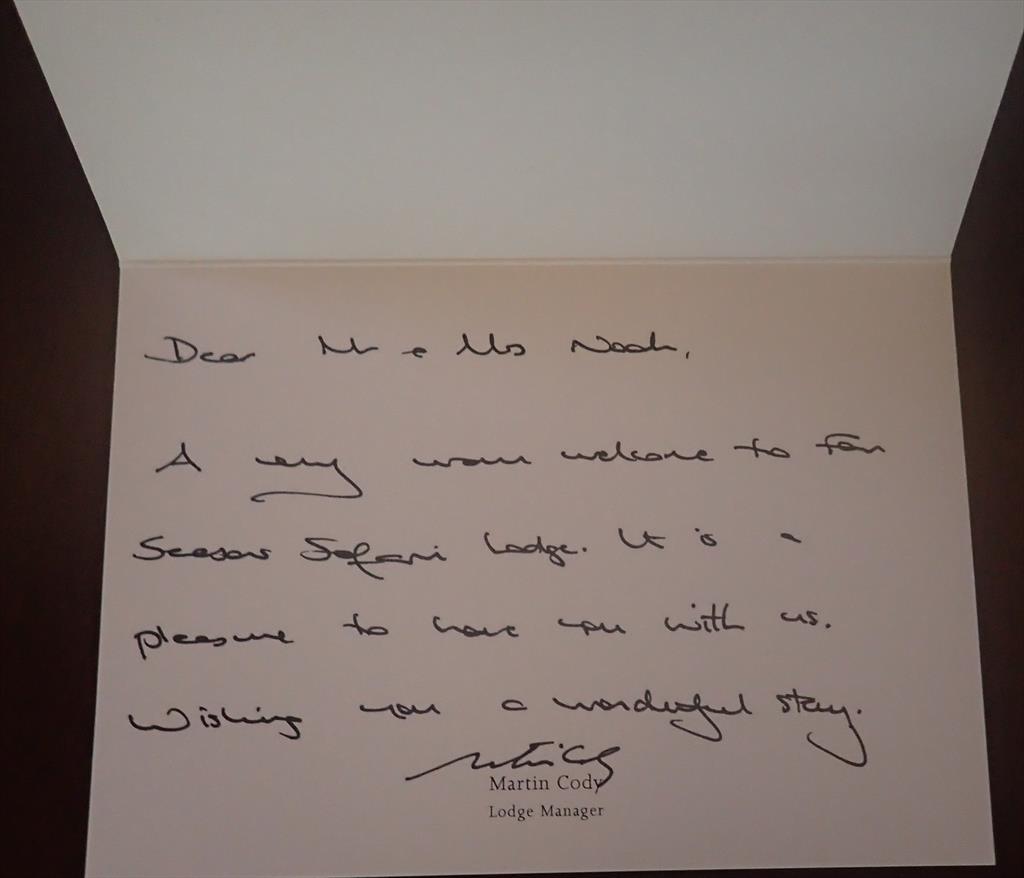 Dear Mr & Mrs Noah,
A very warm welcome to Four
Seasons Safari Lodge. It is a
pleasure to have you with us.
Wishing you a wonderful stay.
Martin Cody
Lodge Manager